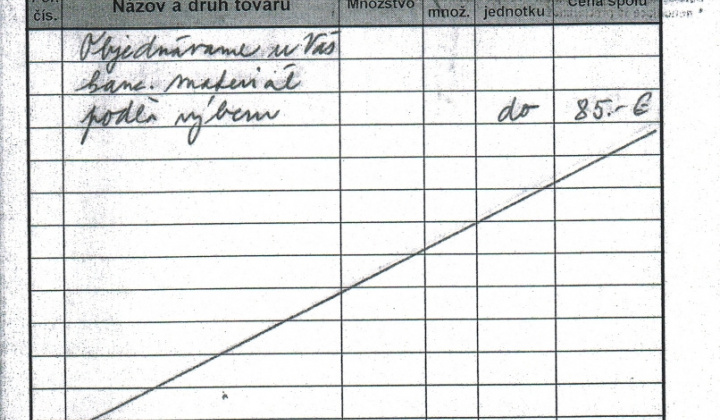 čís. Názov a druh tovaru Množstvo množ. jednotku Cena spolu
Objednávame u Vás
kanc. materiál
podľa výberu do 85.- €